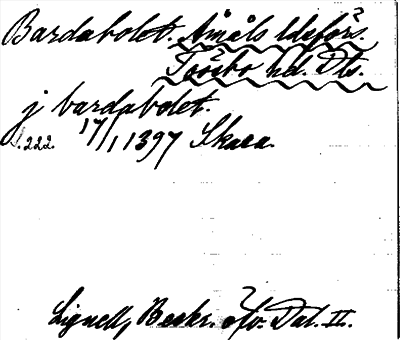 Bardabolet. Åmåls ldsförs.
Tössbo hd. Dls.
j bardabolet.
s. 222. 17/1 1397 Skara.
Lignell, Beskr. öfv. Dal. II.